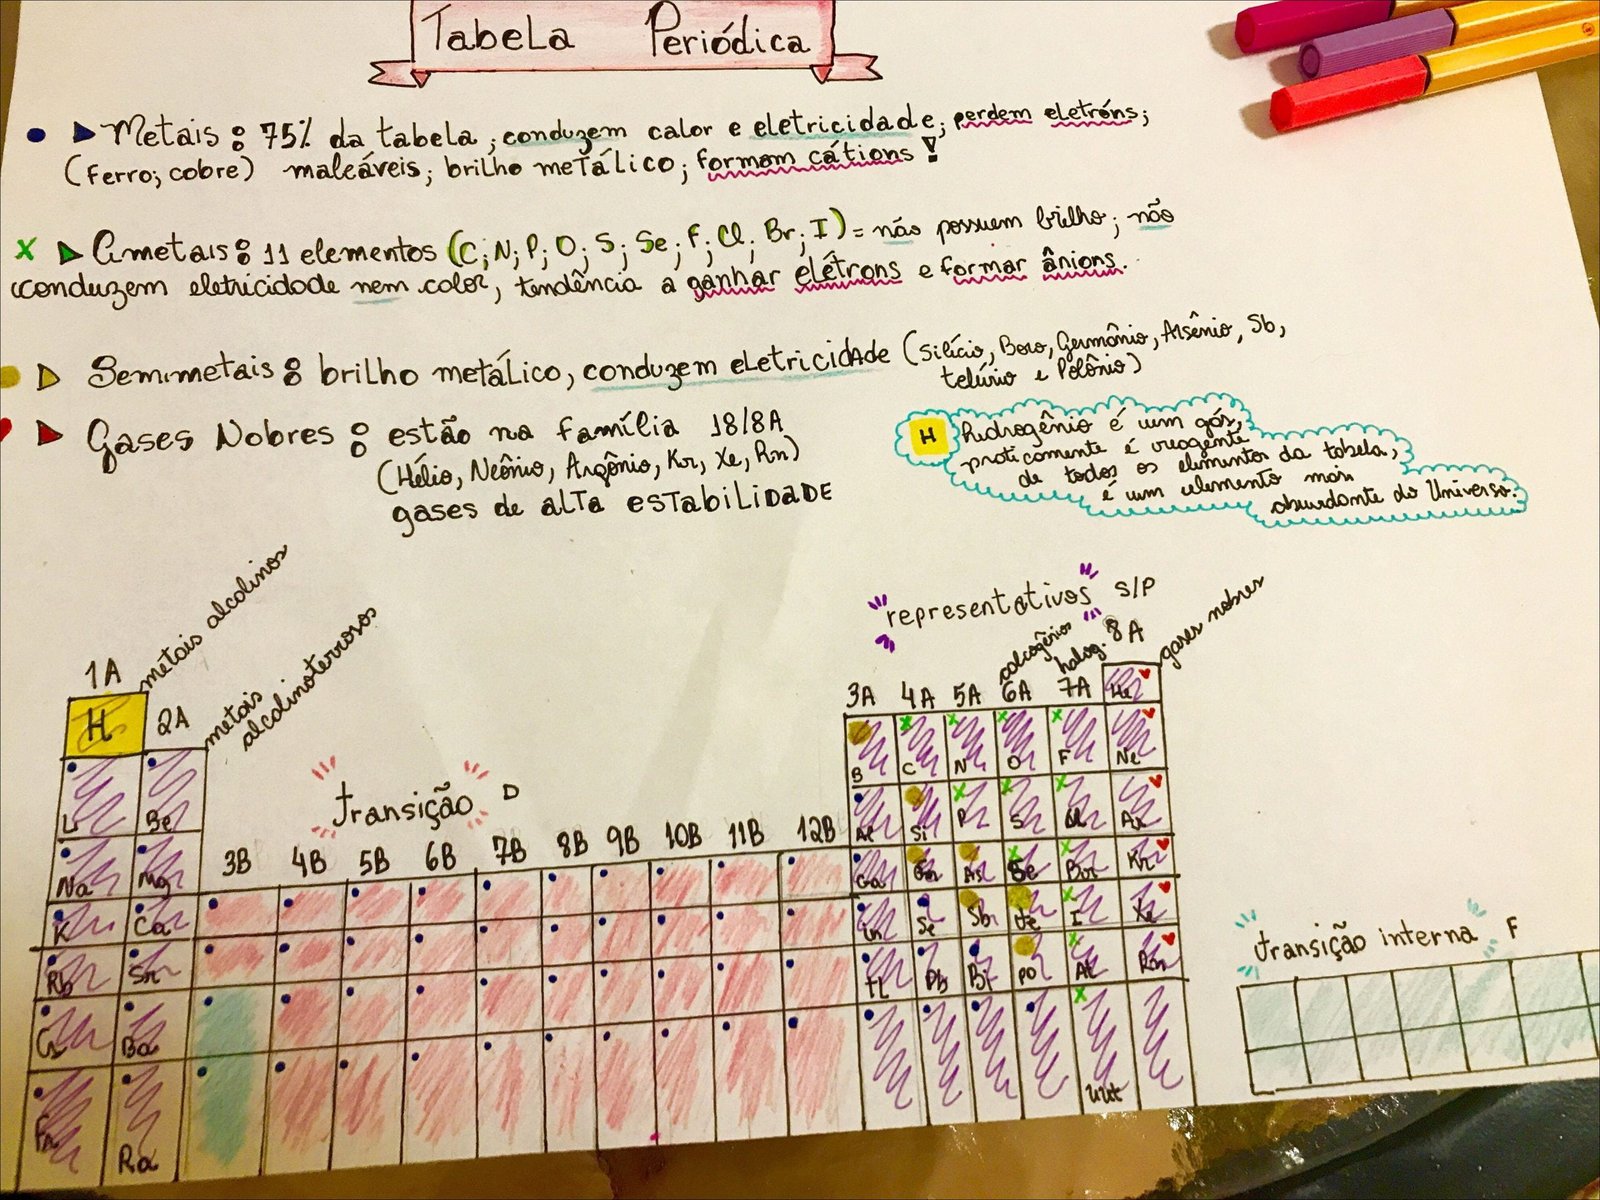 Tabela Periódica
Metais: 75% da tabela; conduzem calor e eletricidade; perdem eletróns;
(ferro; cobre) maleáveis; brilho metálico; formam cátions!
Ametais: 11 elementos (C; N; P; O; S; Se; F; Cl; Br; I) = não possuem brilho; não
conduzem eletricidade nem calor, tendência a ganhar elétrons e formar ânions.
Semimetais: brilho metálico, conduzem eletricidade (Silício, Boro, Germânio, Arsênio, Sb,
telúrio e Polônio)
Gases Nobres: estão na família 18/8A
(Hélio, Neônio, Argônio, Kr, Xe, Rn)
gases de alta estabilidade
H hidrogênio é um gás,
praticamente é reagente
de todos os elementos da tabela,
é um elemento mais
abundante do Universo.
metais alcalinos
metais
alcalinoterrosos
"representativos" S/P
calcogênios
halog.
gases nobres
transição D
transição interna F
1A 2A 3B 4B 5B 6B 7B 8B 9B 10B 11B 12B 3A 4A 5A 6A 7A 8A
H He
Li Be B C N O F Ne
Na Mg Al Si P S Cl Ar
K Ca Ga Se Br Kr
Rb Sr In Se Sb Te I Xe
Cs Ba Tl Pb Bi Po At Rn
Fr Ra